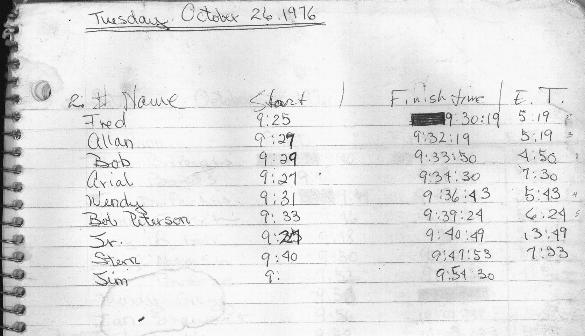 Tuesday October 26, 1976
2. # Name Start Finish time E.T.
Fred 9:25 9:30:19 5:19
Allan 9:27 9:32:19 5:19
Bob 9:29 9:33:50 4:50
Arial 9:27 9:34:30 7:30
Wendy 9:31 9:36:43 5:43
Bob Peterson 9:33 9:39:24 6:24
Jr. 9:27 9:40:49 13:49
Stern 9:40 9:47:53 7:53
Jim 9: 9:54:30